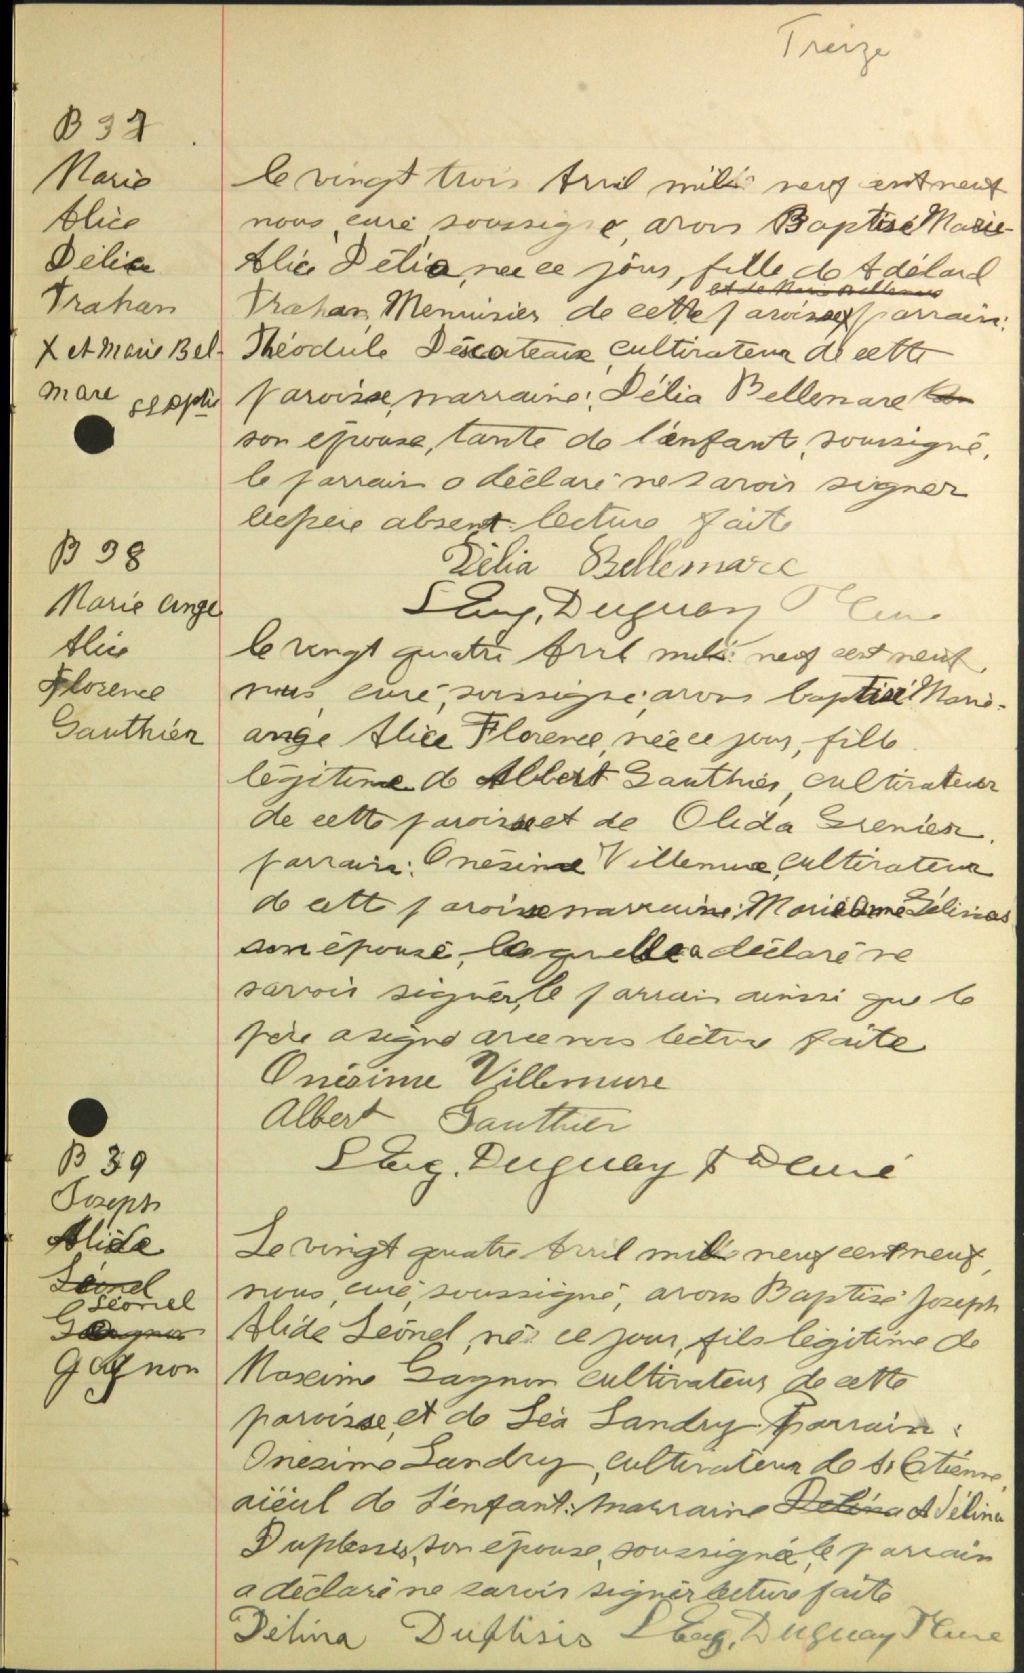 Treize
B 37
Marie
Alice
Délia
Trahan
X et Marie Bel-
mare
le vingt trois Avril mil neuf cent neuf
nous, curé soussigné, avons Baptisé Marie
Alice Délia, née ce jour, fille de Adélard
et de Marie Bellemare
Trahan, Menuisier de cette paroisse X parrain:
Théodule Descoteaux, cultivateur de cette
paroisse, marraine: Délia Bellemare
son épouse, tante de l'enfant, soussigné,
le parrain a déclaré ne savoir signer
le père absent. lecture faite
Délia Bellemare
L Eug. Duguay Ptre Curé
B 38
Marie Ange
Alice
Florence
Gauthier
le vingt quatre Avril mil neuf cent neuf,
nous, curé, soussigné, avons baptisé Marie-
ange Alice Florence, née ce jour, fille
légitime de Albert Gauthier, cultivateur
de cette paroisse et de Olida Grenier.
parrain: Onésime Villemure, cultivateur
de cette paroisse marraine: Marie Anne Gélinas
son épouse, laquelle a déclaré ne
savoir signer, le parrain ainsi que le
père a signé avec nous lecture faite
Onésime Villemure
Albert Gauthier
L Eug. Duguay Ptre Curé
B 39
Joseph
Alide
Léonel
Léonel
Gagnon
Gagnon
Le vingt quatre Avril mil neuf cent neuf,
nous, curé, soussigné, avons Baptisé Joseph
Alide Léonel, né ce jour, fils légitime de
Maxime Gagnon cultivateur de cette
paroisse, et de Léa Landry. Parrain:
Onésime Landry, cultivateur de St Etienne,
aïeul de l'enfant: marraine Delina Adélina
Duplessis, son épouse, soussignée, le parrain
a déclaré ne savoir signer lecture faite
Délina Duplisis L Eug. Duguay Ptre Curé